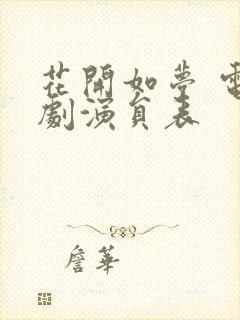 花開如夢 電
劇演員表
詹華